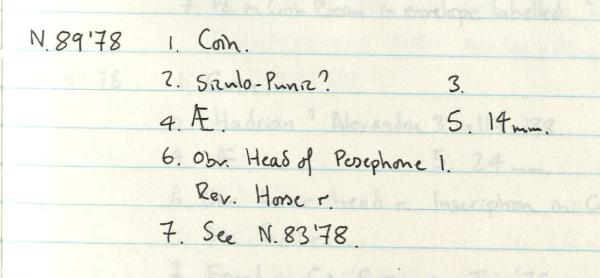 N.89'78 1. Coin.
2. Siculo-Punic? 3.
4. Æ. 5. 14mm.
6. Obv. Head of Persephone l.
Rev. Horse r.
7. See N.83'78.